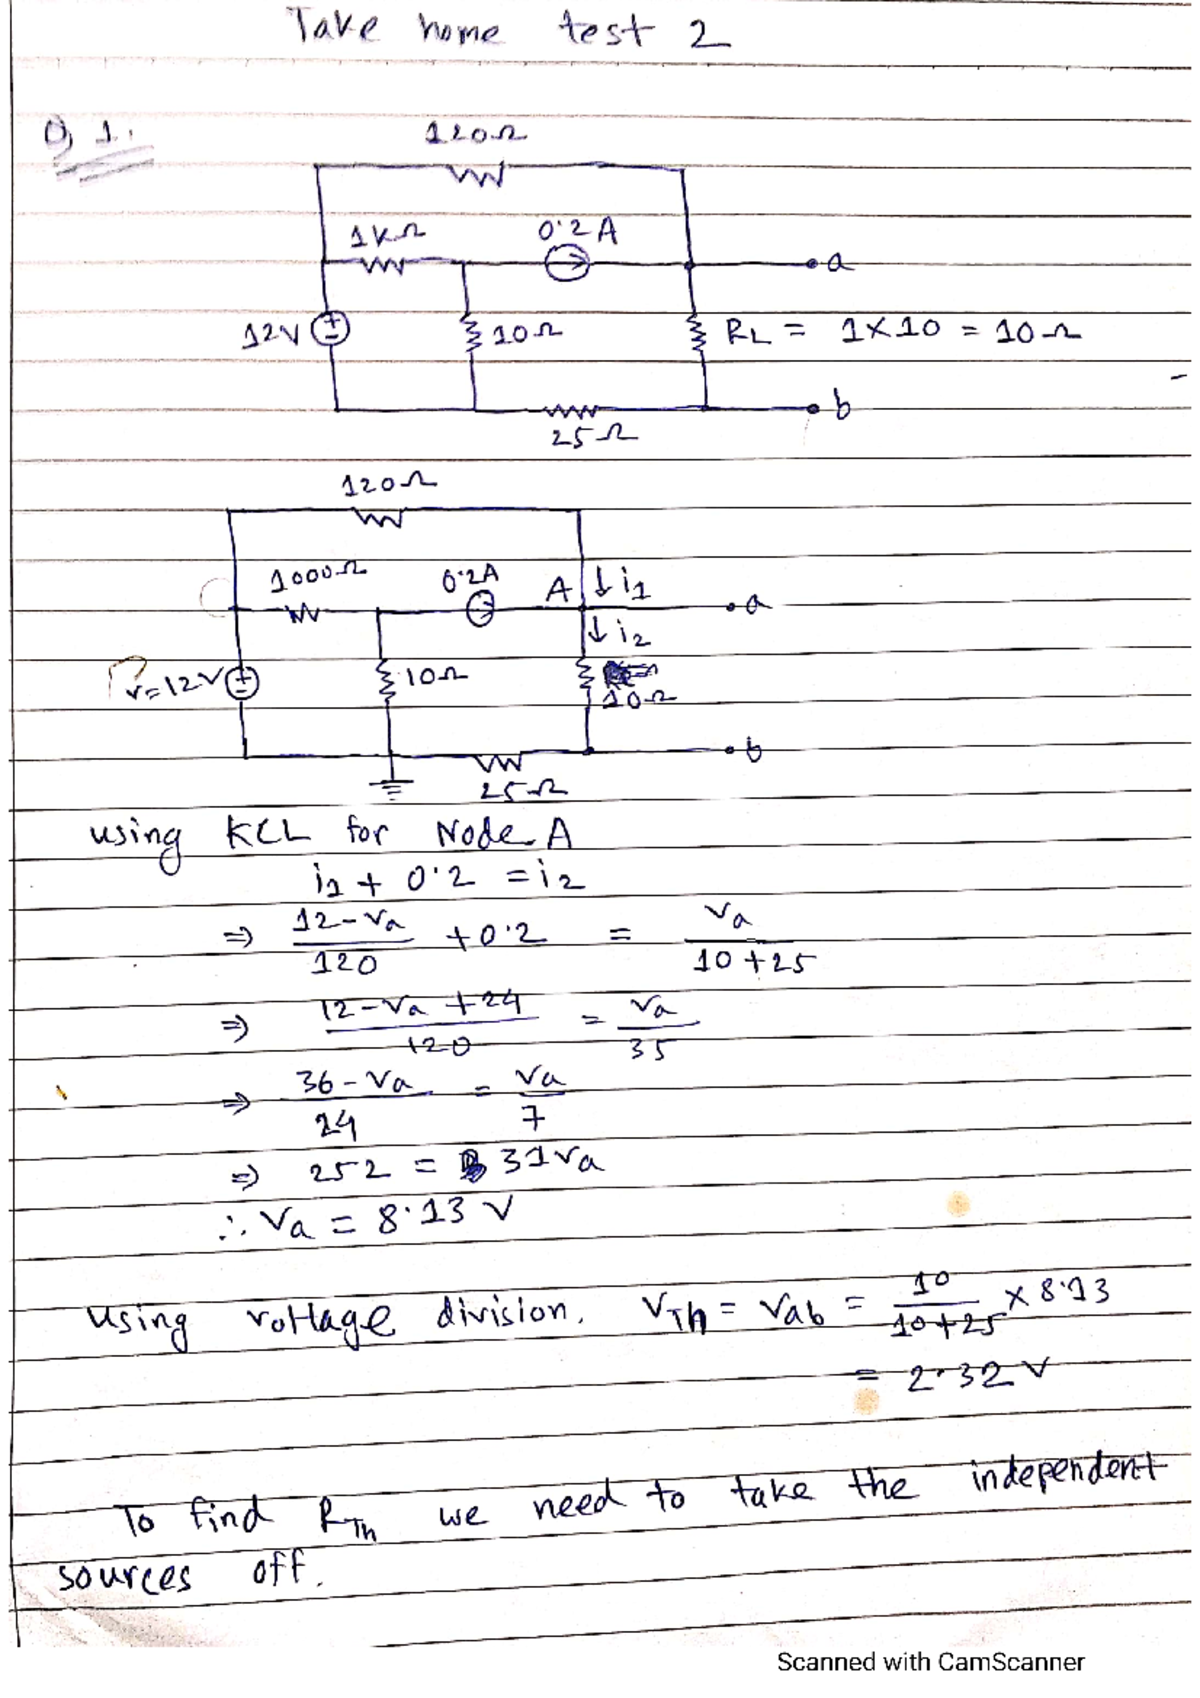 Take home test 2
Q 1.
120Ω
1KΩ 0.2A
a
12V 10Ω RL = 1×10 = 10Ω
b
25Ω
120Ω
1000Ω 0.2A A ↓i1
a
↓i2
V=12V 10Ω
10Ω
b
25Ω
using KCL for Node A
i1 + 0.2 = i2
⇒ (12-Va)/120 + 0.2 = Va/(10+25)
⇒ (12-Va+24)/120 = Va/35
⇒ (36-Va)/24 = Va/7
⇒ 252 = 31Va
∴ Va = 8.13 V
Using voltage division, VTh = Vab = 10/(10+25) × 8.13
= 2.32 V
To find RTh we need to take the independent
sources off.
Scanned with CamScanner